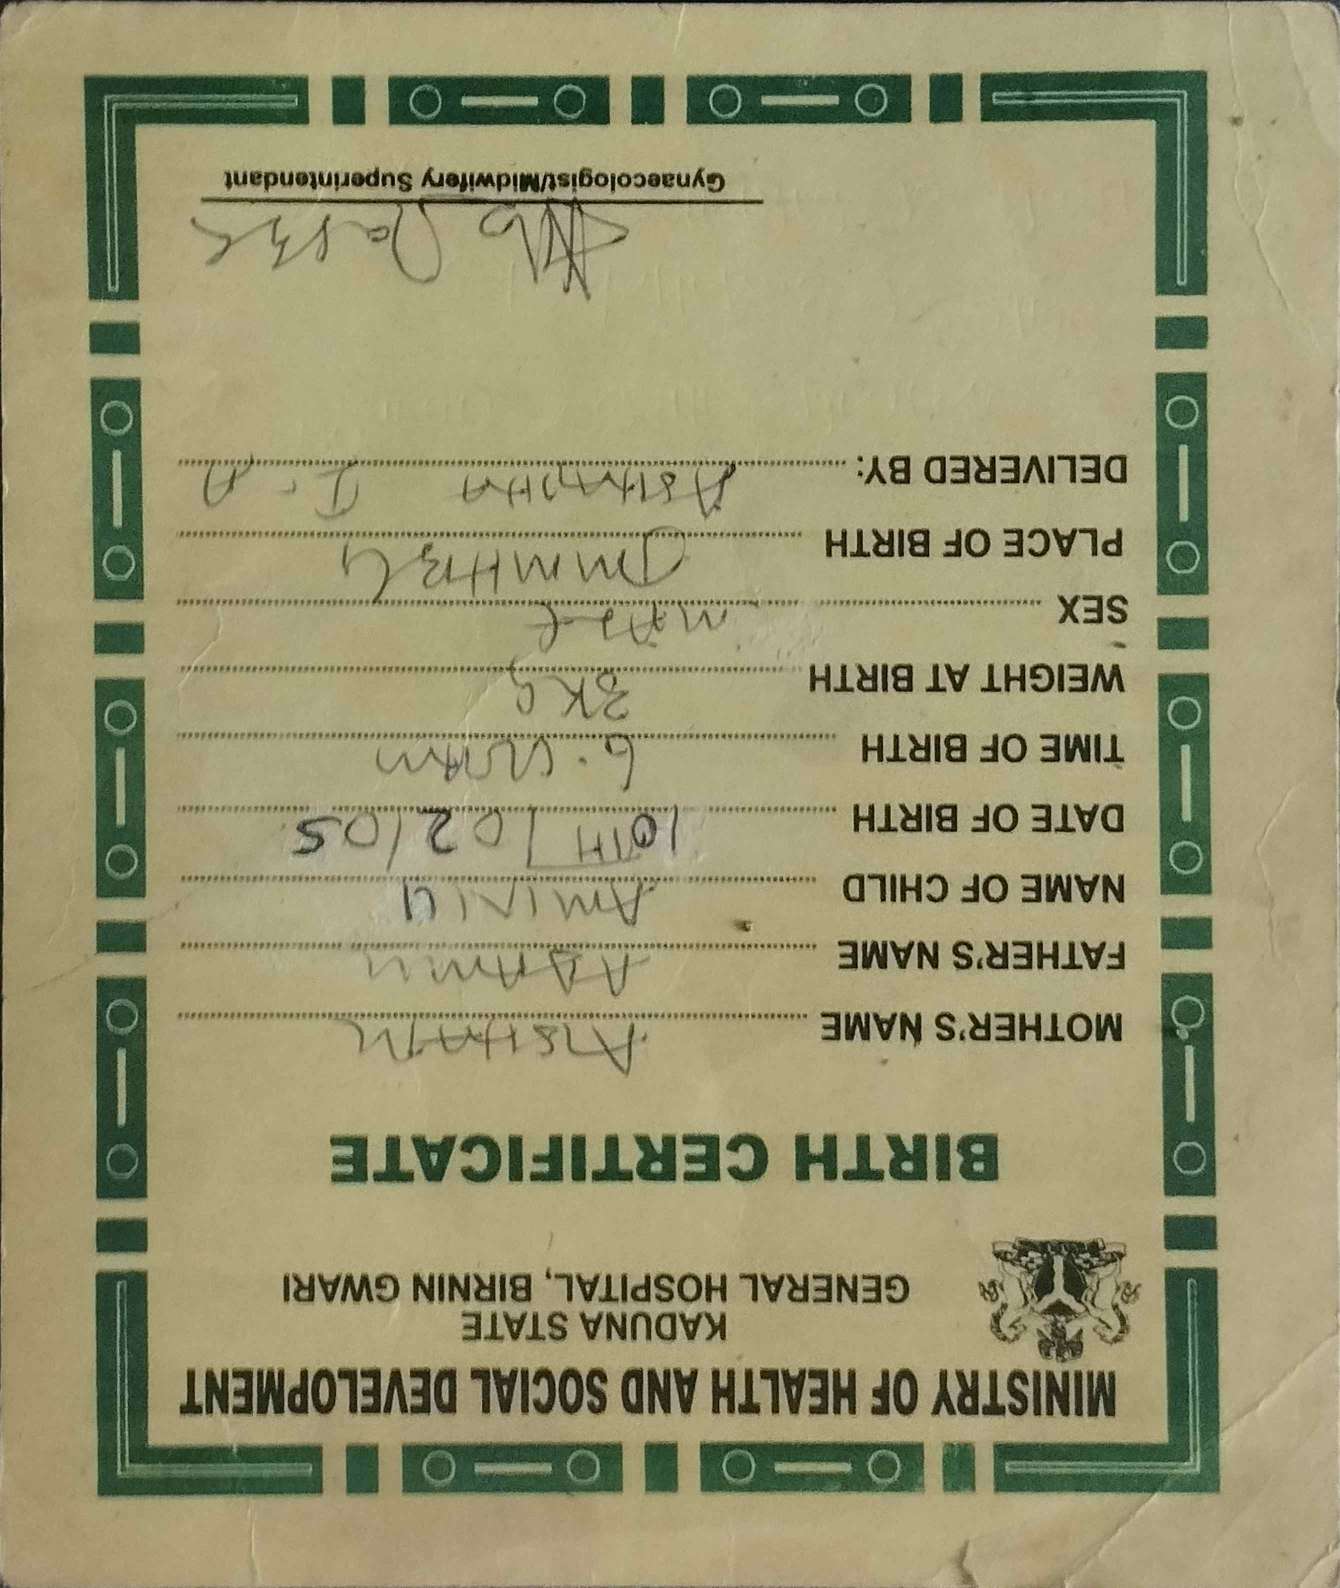 MINISTRY OF HEALTH AND SOCIAL DEVELOPMENT
KADUNA STATE
GENERAL HOSPITAL, BIRNIN GWARI
BIRTH CERTIFICATE
MOTHER'S NAME
FATHER'S NAME ADAMU
NAME OF CHILD AMINU
DATE OF BIRTH 10TH/02/05
TIME OF BIRTH
WEIGHT AT BIRTH 3KG
SEX MALE
PLACE OF BIRTH
DELIVERED BY:
Gynaecologist/Midwifery Superintendant